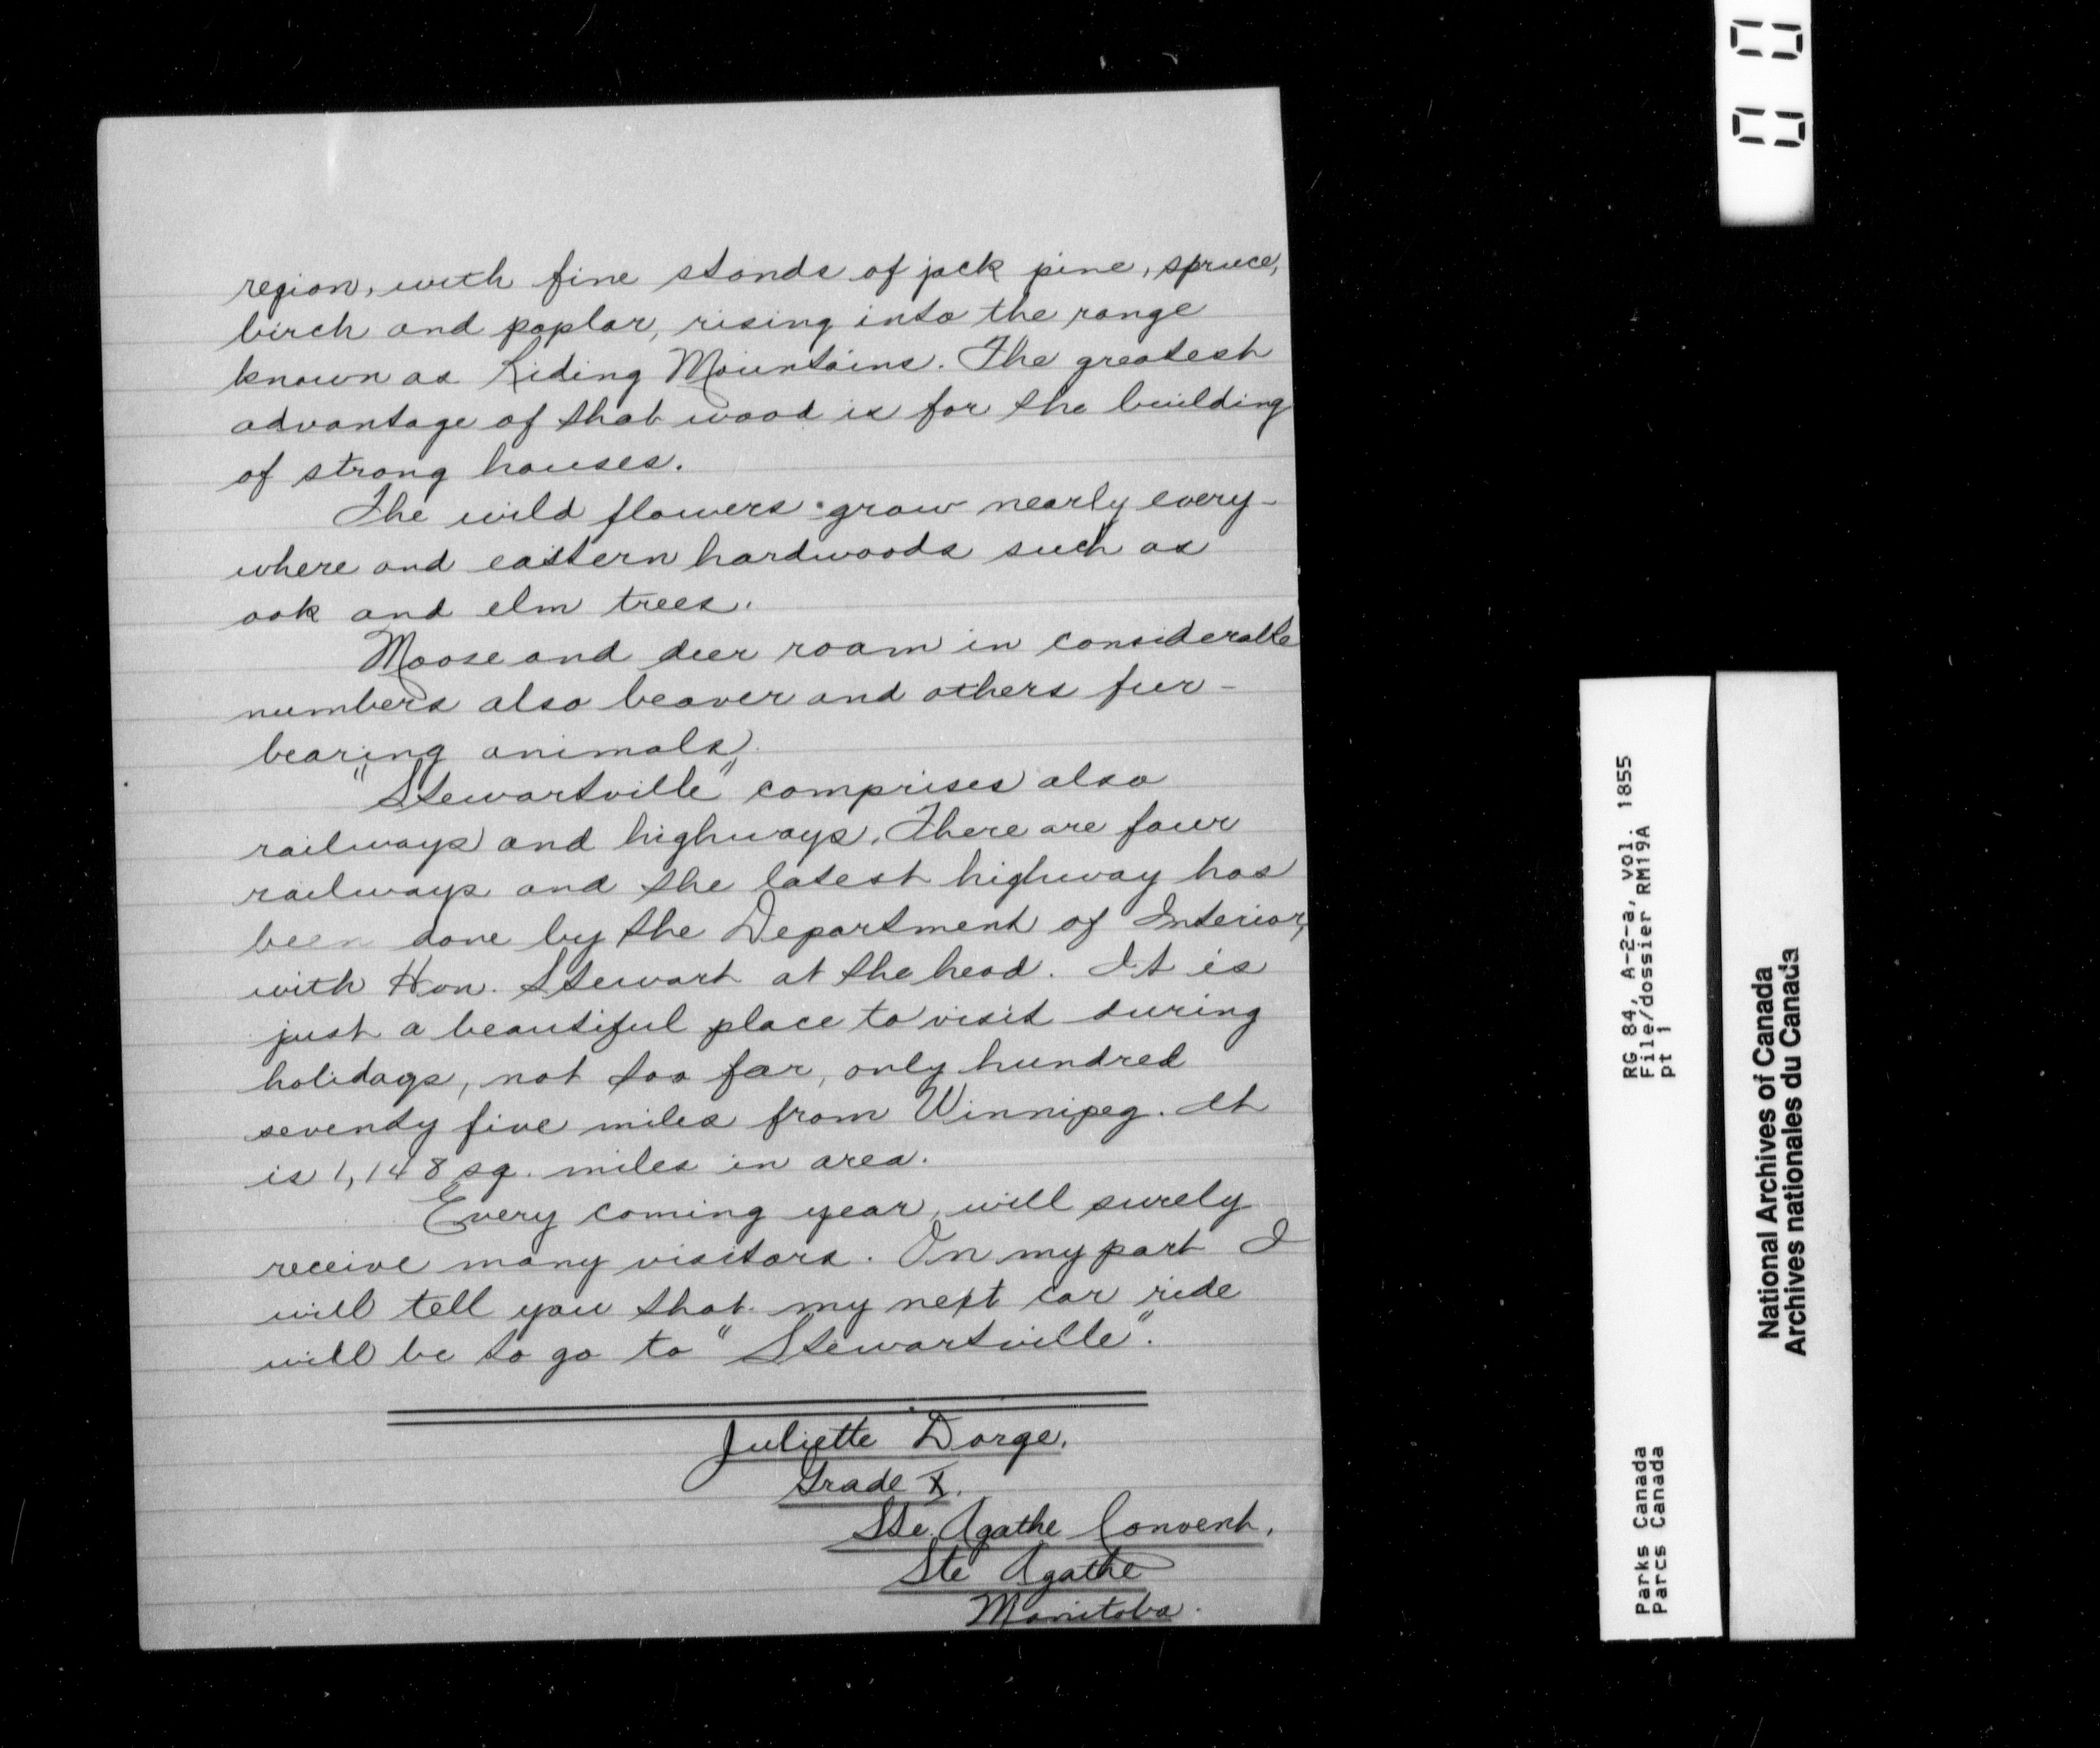 region, with fine stands of jack pine, spruce,
birch and poplar, rising into the range
known as Riding Mountains. The greatest
advantage of that wood is for the building
of strong houses.
The wild flowers grow nearly every-
where and eastern hardwoods such as
oak and elm trees.
Moose and deer roam in considerable
numbers also beaver and others fur-
bearing animals.
"Stewartville" comprises also
railways and highways. There are four
railways and the latest highway has
been done by the Department of Interior,
with Hon. Stewart at the head. It is
just a beautiful place to visit during
holidays, not too far, only hundred
seventy five miles from Winnipeg. It
is 1,148 sq. miles in area.
Every coming year, will surely
receive many visitors. On my part I
will tell you that my next car ride
will be to go to "Stewartville".
Juliette Dorge.
Grade X.
Ste. Agathe Convent,
Ste Agathe
Manitoba.
RG 84, A-2-a, vol. 1855
File/dossier RM19A
pt 1
Parks Canada
Parcs Canada
National Archives of Canada
Archives nationales du Canada